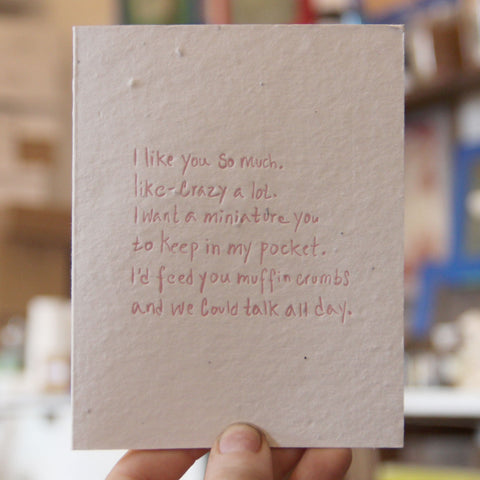 I like you so much.
like-crazy a lot.
I want a miniature you
to keep in my pocket.
I'd feed you muffin crumbs
and we could talk all day.